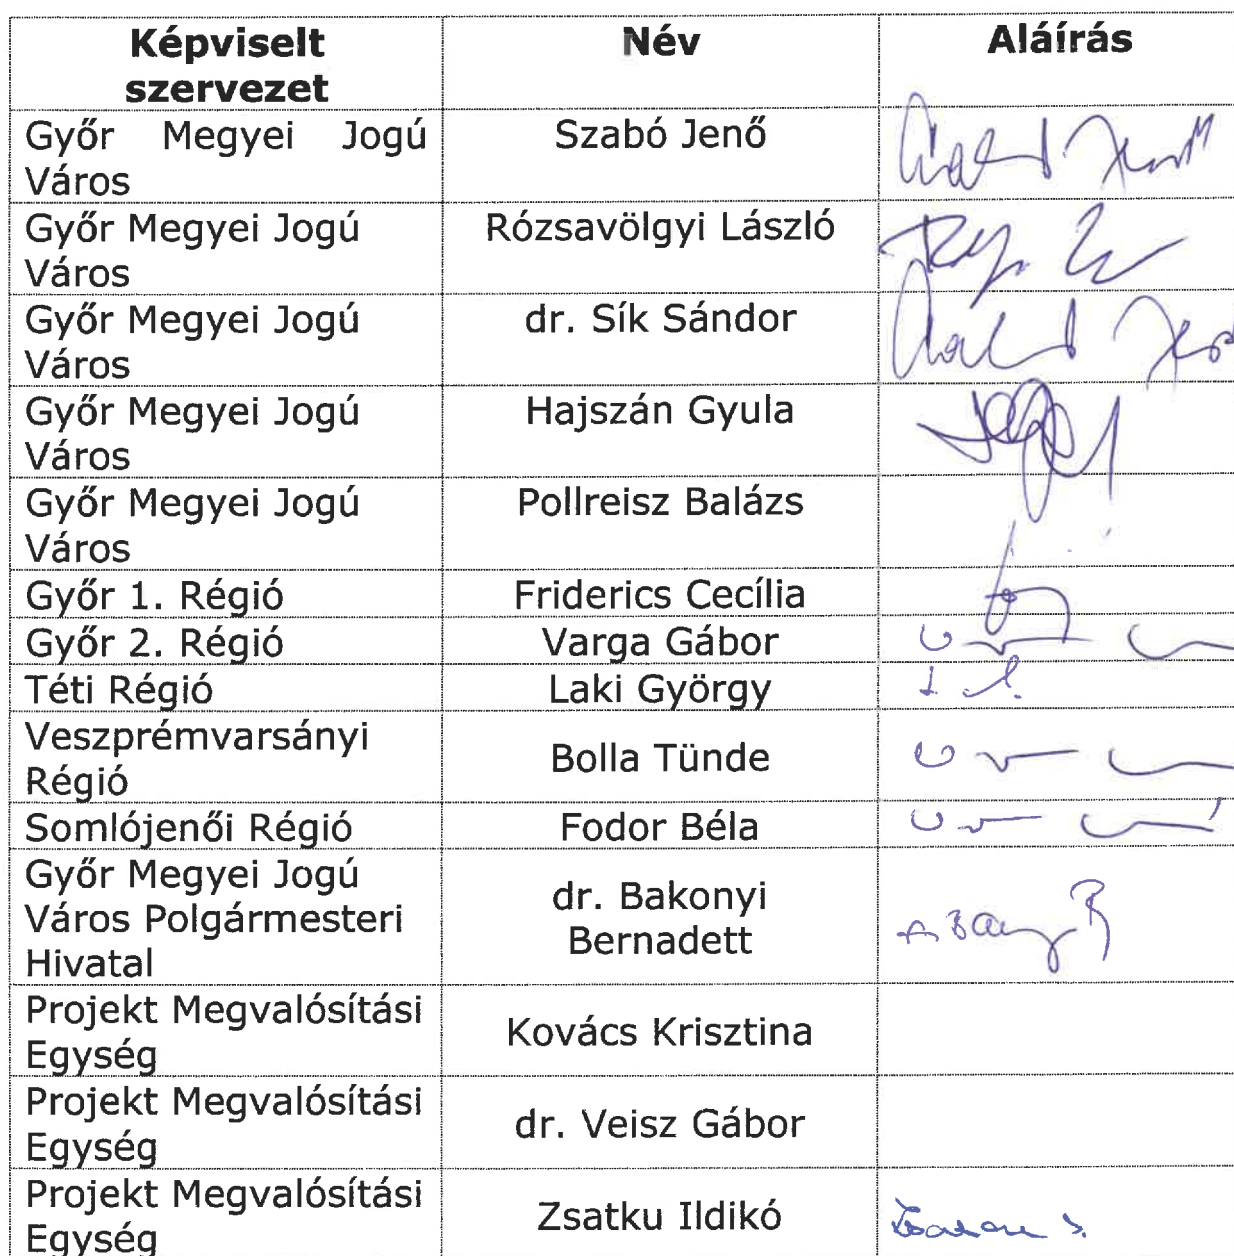 Képviselt szervezet Név Aláírás
Győr Megyei Jogú Város Szabó Jenő
Győr Megyei Jogú Város Rózsavölgyi László
Győr Megyei Jogú Város dr. Sík Sándor
Győr Megyei Jogú Város Hajszán Gyula
Győr Megyei Jogú Város Pollreisz Balázs
Győr 1. Régió Friderics Cecília
Győr 2. Régió Varga Gábor
Téti Régió Laki György
Veszprémvarsányi Régió Bolla Tünde
Somlójenői Régió Fodor Béla
Győr Megyei Jogú Város Polgármesteri Hivatal dr. Bakonyi Bernadett
Projekt Megvalósítási Egység Kovács Krisztina
Projekt Megvalósítási Egység dr. Veisz Gábor
Projekt Megvalósítási Egység Zsatku Ildikó